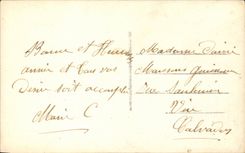 Bonne et Heureuse
année et tous vos
Désir soit accompli
Marie C
Madame
Maison
Rue Saulnier
Vire
Calvados